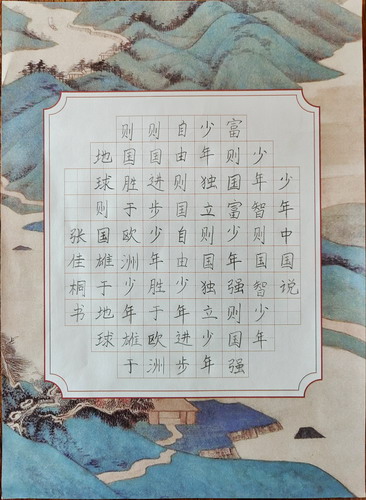 少年中国说
少年智则国智少年
富则国富少年强则国强
少年独立则国独立少年
自由则国自由少年进步
则国进步少年胜于欧洲
则国胜于欧洲少年雄于
地球则国雄于地球
张佳桐书